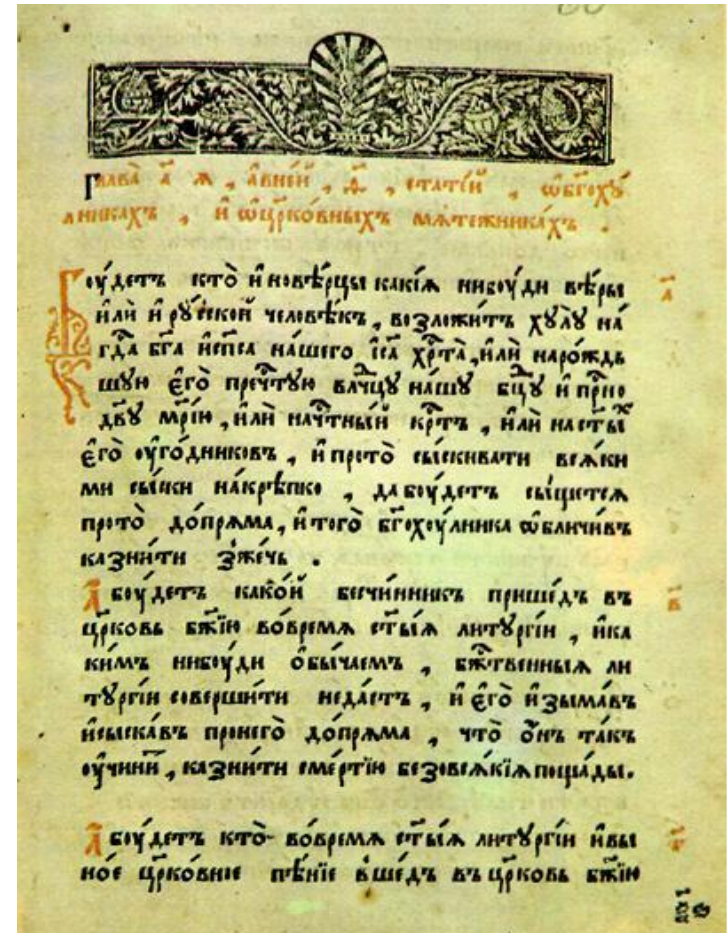 Глава̀ а҃ я , а́внєи̑ , ѳ҃ , статєи̑ , ѡбг҃оху́
лникахъ , и҆ ѡцр҃ко́вныхъ мѧтежника́хъ .
Бꙋ́дєтъ кто̀ и҆новѣ́рцы какі́ѧ нибꙋ́ди вѣ́ры а҃
и҆лѝ и҆ рꙋ́сской человѣ́къ , возложи́тъ хꙋлꙋ̀ на́
гдⷭ҇а бг҃а и҆сп҃са на́шего і҆с҃а хрⷭ҇та̀ , и҆лѝ наро́ждь
шꙋю є҆го̀ пречⷭ҇тꙋю влⷣчцꙋ на́шꙋ бцⷣꙋ и҆ прⷭ҇но
дв҃ꙋ мр҃і́ю , и҆лѝ начⷭ҇тны́й крⷭ҇тъ , и҆лѝ наст҃ы́хъ
є҆го̀ ᲂу҆го́дниковъ , и҆ прото̀ сы́скивати всѧ́ки
ми сы́ски на́крѣпко , да бꙋ́детъ сы́щетсѧ
прото̀ до́прѧма , и҆того̀ бг҃охꙋ́лника ѡ҆бличи́въ
казни́ти зже́чь .
А҆ бꙋ́детъ како́й бесчи́нникъ прише́дъ въ в҃
цр҃ковь бж҃їю во́времѧ ст҃ы́ѧ литꙋргі́и , и҆ка
ки́мъ нибꙋ́ди ѻ҆бы́чаемъ , бжⷭ҇твенныѧ ли
тꙋргі́и соверши́ти неда́стъ , и҆ є҆го̀ и҆зыма́въ
и҆сыска́въ пронего̀ до́прѧма , что̀ ѻ҆́нъ та́къ
ᲂу҆чини́тъ , казни́ти сме́ртїю безовсѧ́кїѧ поща́ды .
А҆ бꙋ́детъ кто̀ во́времѧ ст҃ы́ѧ литꙋргі́и и҆вы г҃
но́е цр҃ко́вное пѣ́нїе вше́дъ въ цр҃ковь бж҃їю